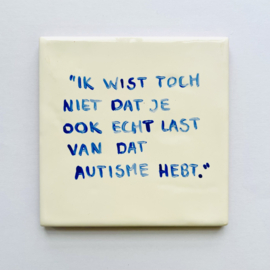 "IK WIST TOCH
NIET DAT JE
OOK ECHT LAST
VAN DAT
AUTISME HEBT."